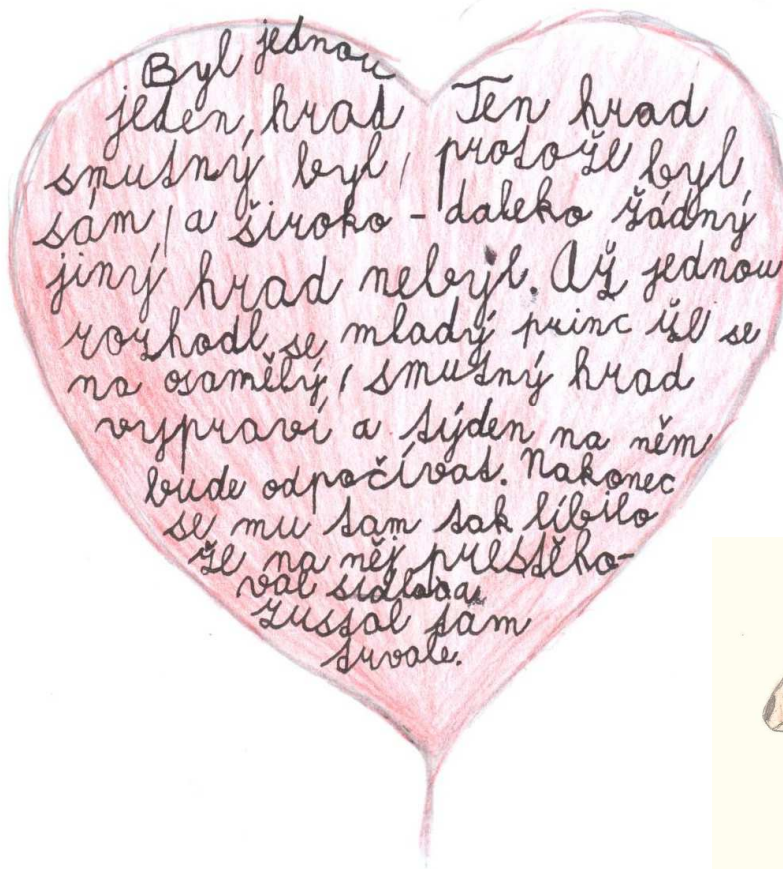 Byl jednou
jeden, hrad Ten hrad
smutný byl, protože byl
sám, a široko - daleko žádný
jiný hrad nebyl. Až jednou
rozhodl se mladý princ že se
na osamělý, smutný hrad
vypraví a týden na něm
bude odpočívat. Nakonec
se mu tam tak líbilo
že na něj přestěho-
val sidlo a
zustal tam
trvale.